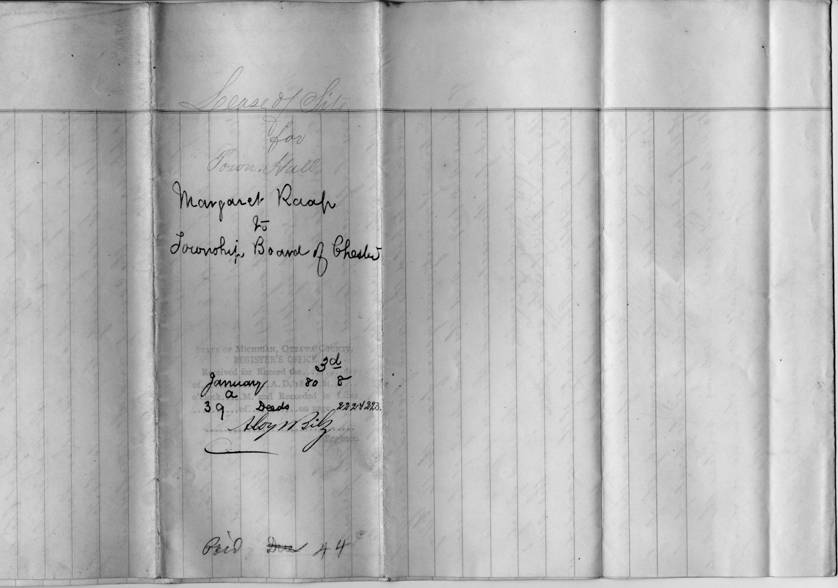 Lease of Site
for
Town Hall
Margaret Raap
to
Township Board of Chester
STATE OF MICHIGAN, OTTAWA COUNTY,
REGISTER'S OFFICE
Received for Record the 3d
of January A.D. 1880 at 8
o'clock, A M. and Recorded in Liber
39 of Deeds on 222 & 223
Aloys Bilz
Register.
Paid 44